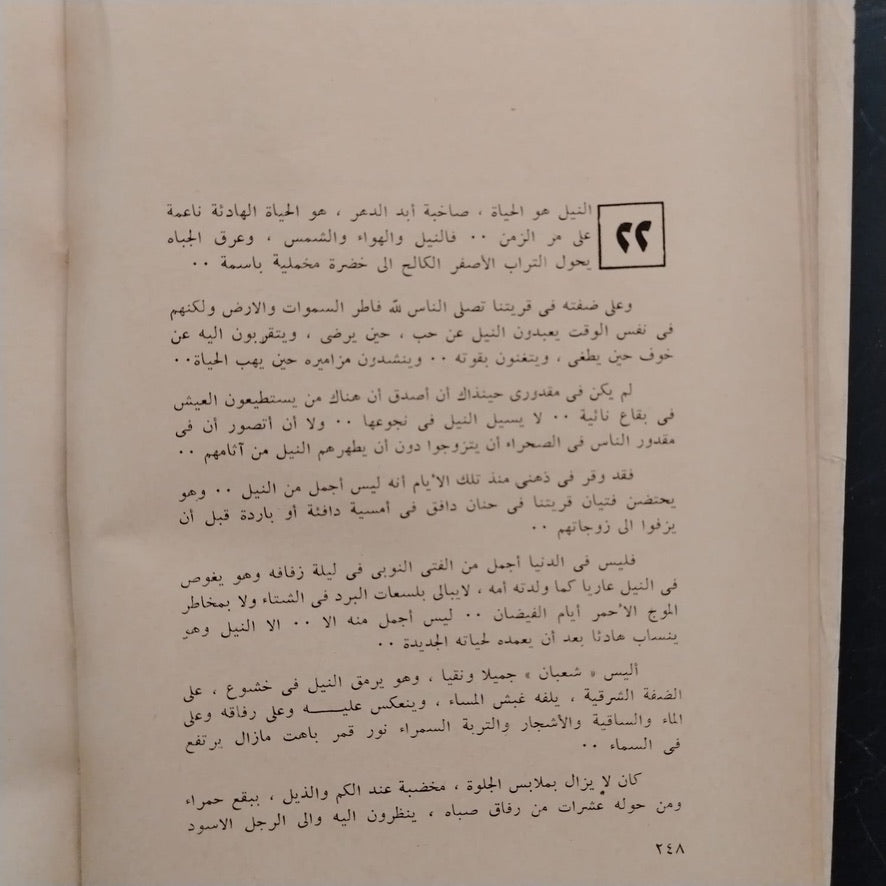 ٢٢
النيل هو الحياة ، صاخبة أبد الدهر ، هو الحياة الهادئة ناعمة
على مر الزمن ٠٠ فالنيل والهواء والشمس ، وعرق الجباه
يحول التراب الأصفر الكالح الى خضرة مخملية باسمة ٠٠
وعلى ضفته فى قريتنا تصلى الناس لله فاطر السموات والارض ولكنهم
فى نفس الوقت يعبدون النيل عن حب ، حين يرضى ، ويتقربون اليه عن
خوف حين يطغى ، ويتغنون بقوته ٠٠ وينشدون مزاميره حين يهب الحياة٠٠
لم يكن فى مقدورى حينذاك أن أصدق أن هناك من يستطيعون العيش
فى بقاع نائية ٠٠ لا يسيل النيل فى نجوعها ٠٠ ولا أن أتصور أن فى
مقدور الناس فى الصحراء أن يتزوجوا دون أن يطهرهم النيل من آثامهم ٠٠
فقد وقر فى ذهنى منذ تلك الأيام أنه ليس أجمل من النيل ٠٠ وهو
يحتضن فتيان قريتنا فى حنان دافق فى أمسية دافئة أو باردة قبل أن
يزفوا الى زوجاتهم ٠٠
فليس فى الدنيا أجمل من الفتى النوبى فى ليلة زفافه وهو يغوص
فى النيل عاريا كما ولدته أمه ، لايبالى بلسعات البرد فى الشتاء ولا بمخاطر
الموج الأحمر أيام الفيضان ٠٠ ليس أجمل منه الا ٠٠ الا النيل وهو
ينساب هادئا بعد أن يعمده لحياته الجديدة ٠٠
أليس « شعبان » جميلا ونقيا ، وهو يرمق النيل فى خشوع ، على
الضفة الشرقية ، يلفه غبش المساء ، وينعكس عليــــه وعلى رفاقه وعلى
الماء والساقية والأشجار والتربة السمراء نور قمر باهت مازال يرتفع
فى السماء ٠٠
كان لا يزال بملابس الجلوة ، مخضبة عند الكم والذيل ، ببقع حمراء
ومن حوله عشرات من رفاق صباه ، ينظرون اليه والى الرجل الاسود
٢٤٨